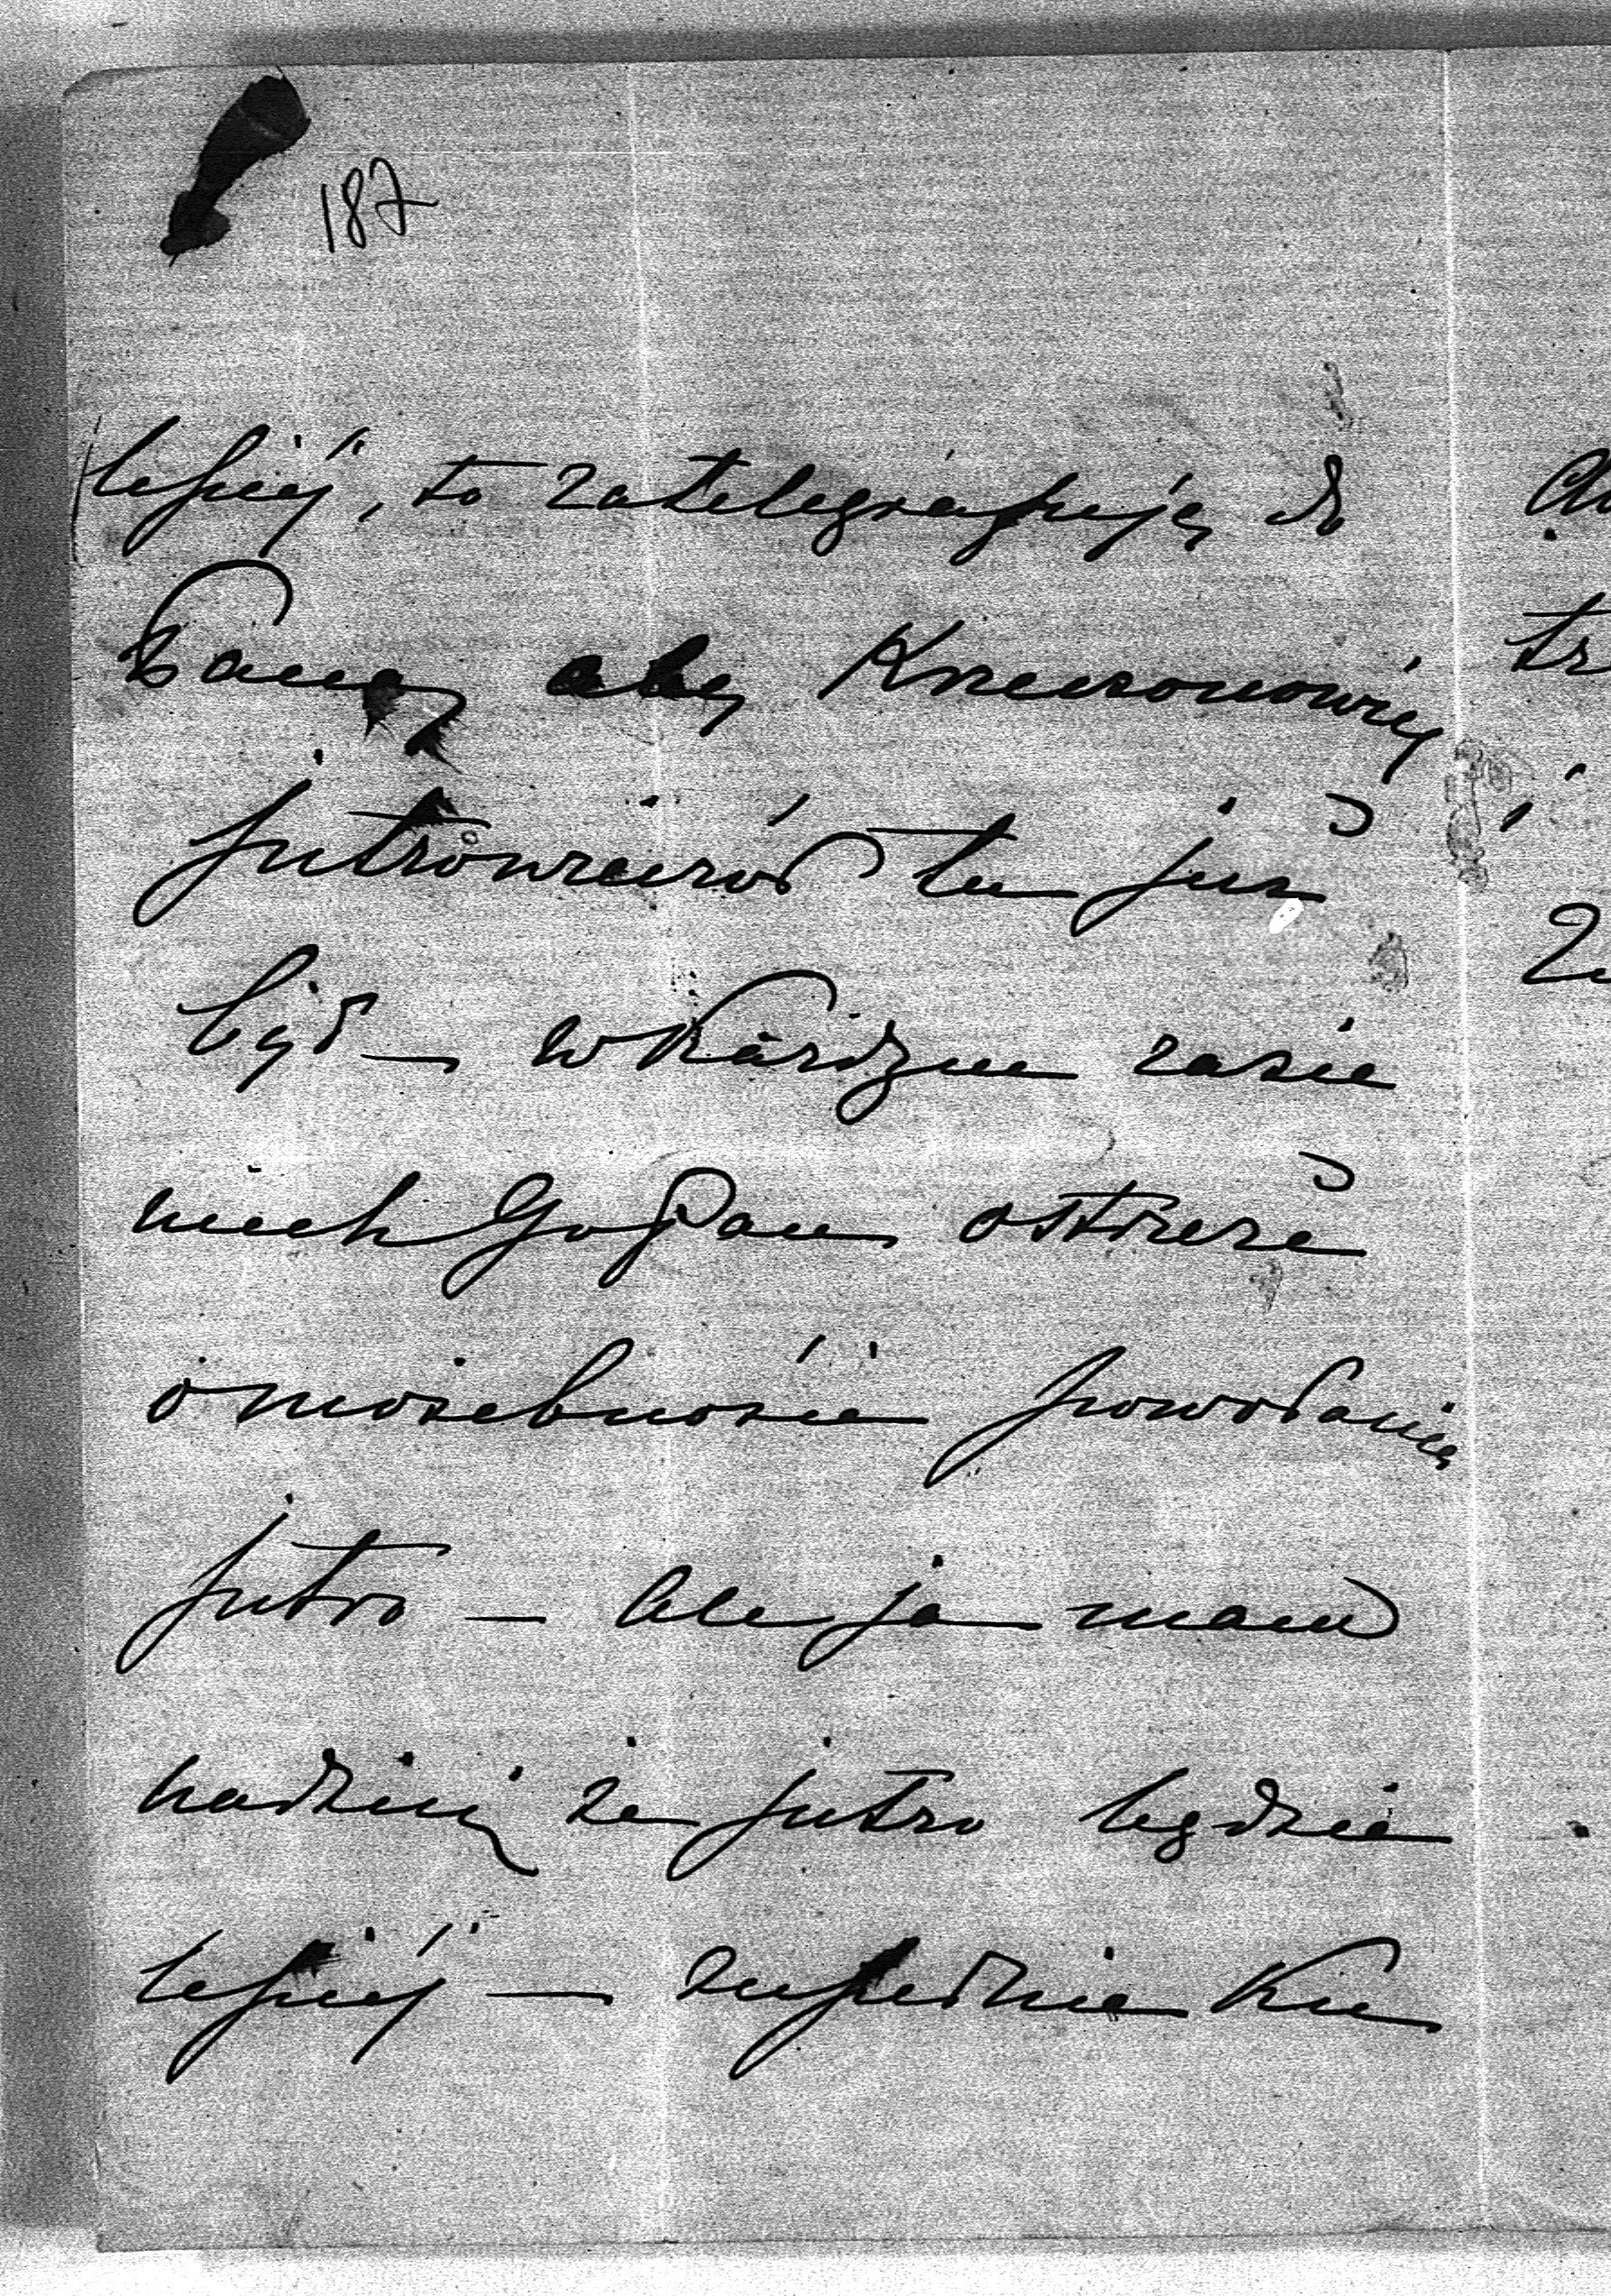 187
lepiej, to zatelegrafuję do
Pana, aby
jutro wieczór tu już
był — w każdym razie
niech Go Pan ostrzeże
o możebności powołania
jutro — ale ja mam
nadzieję że jutro będzie
lepiej — zupełnie Ku